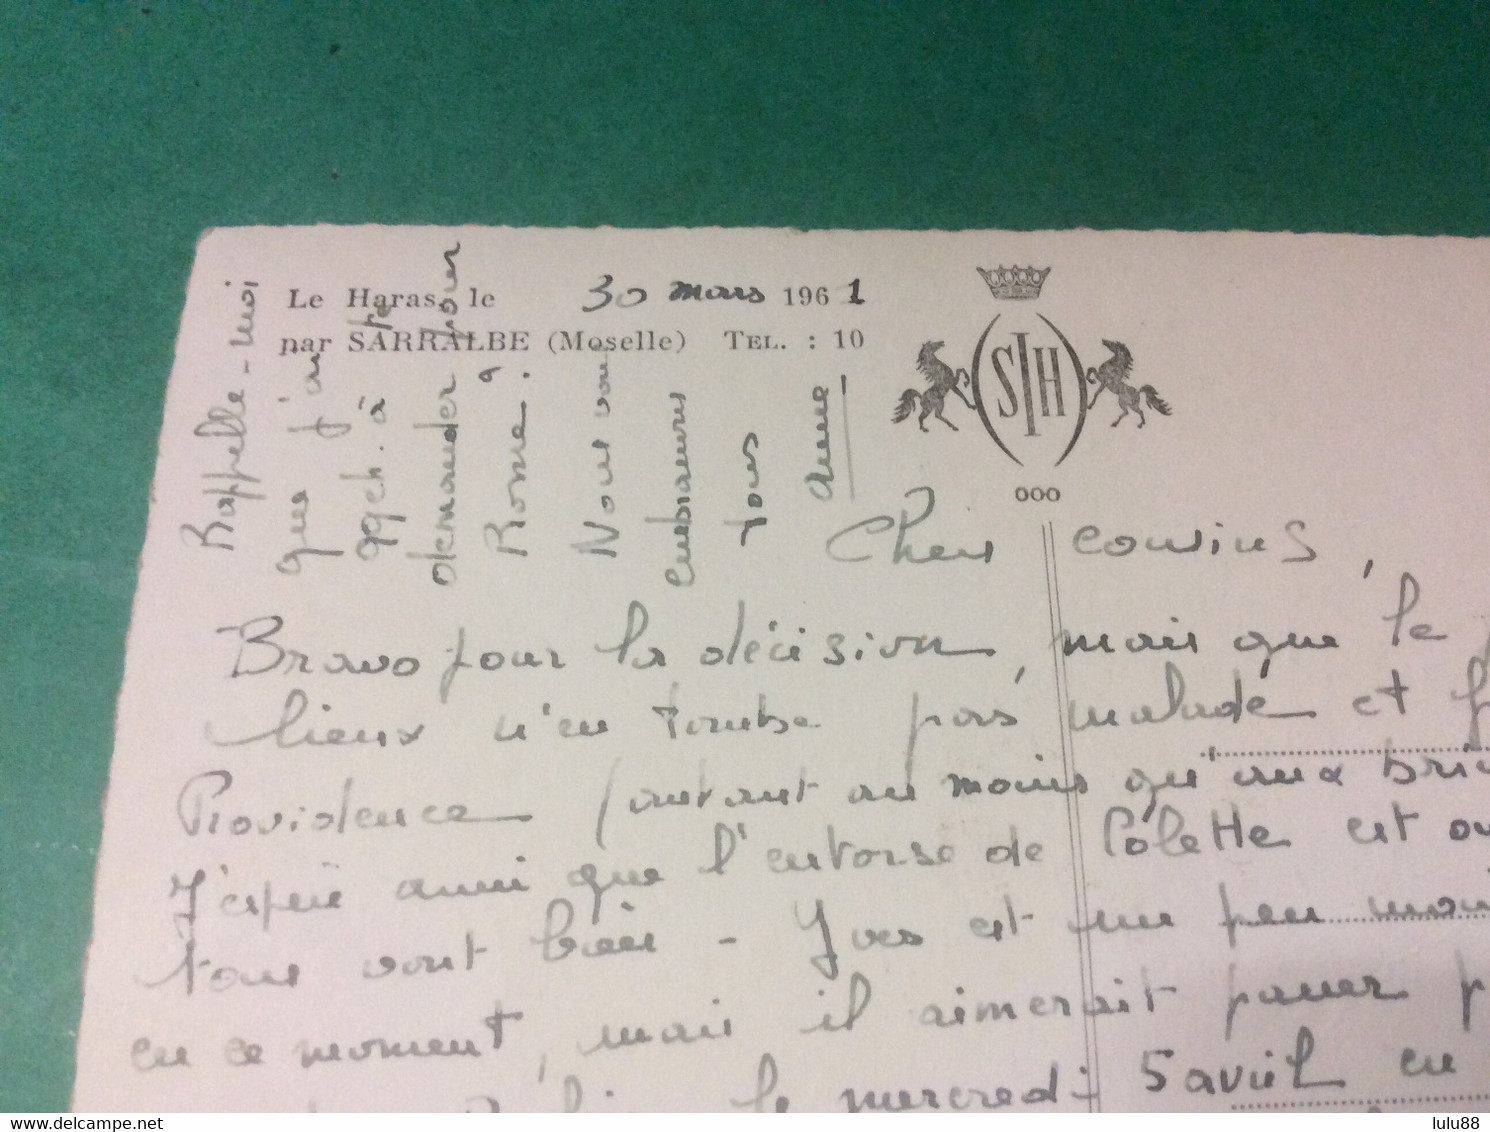 Le Haras, le 30 mars 1961
par SARRALBE (Moselle) TEL. : 10
SIH
ooo
Rappelle-moi
que j'ai
qqch. à te
demander pour
Rome.
Nous vous
embrassons
tous
Anne
Chers cousins,
Bravo pour la décision, mais que le
lieux n'en tombe pas malade et
Providence autant au moins qu'aux
J'espère aussi que l'entorse de Polette est
tous vont bien - Yves est un peu
en ce moment, mais il aimerait passer
le mercredi 5 avril en
delcampe.net
lulu88